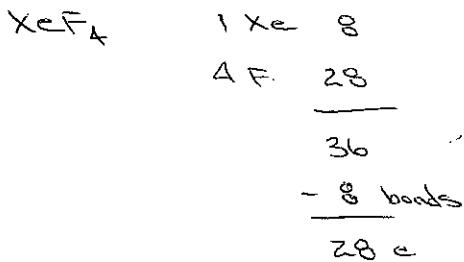 XeF₄ 1 Xe 8
4 F. 28
36
- 8 bonds
28 e